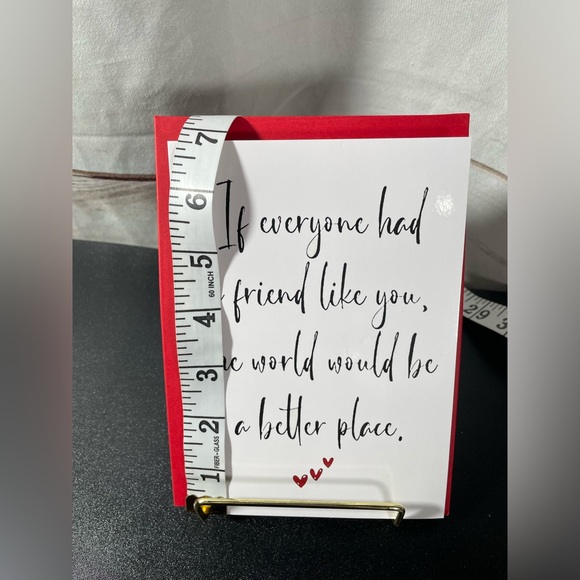 If everyone had
friend like you,
world would be
a better place.
7
6
5
60 INCH
4
3
2
FIBER-GLASS
1
29